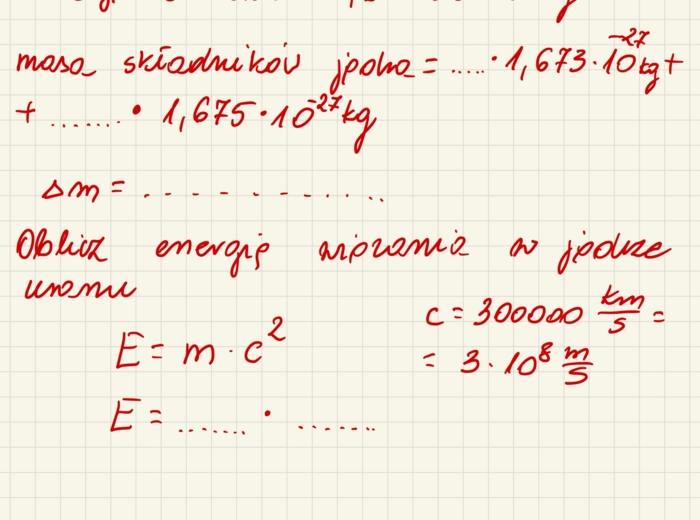 masa składników jądra = ..... · 1,673 · 10⁻²⁷ kg +
+ ....... · 1,675 · 10⁻²⁷ kg
Δm = . . . . . . . . . . . .
Oblicz energię wiązania w jądrze
uranu
c = 300000 km/s =
E = m · c²
= 3 · 10⁸ m/s
E = ....... · .......